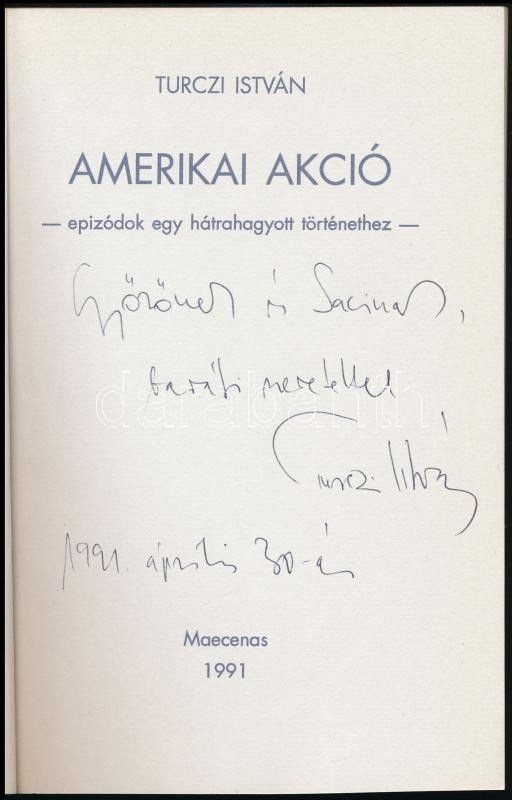 TURCZI ISTVÁN
AMERIKAI AKCIÓ
— epizódok egy hátrahagyott történethez —
Győzőnek és Sacinak,
baráti szeretettel
darabanth
Turczi István
1991. április 30-án
Maecenas
1991